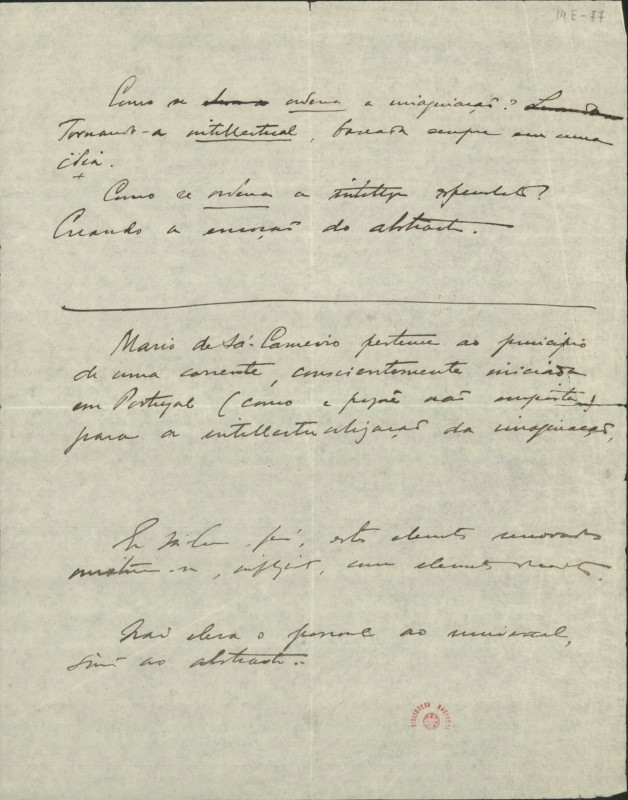 14E-77
Como se ordena a imaginação?
Tornando-a intellectual, baseada sempre em uma
idéa.
Como se ordena a
Creando a emoção do abstracto.
Mario de Sá-Carneiro pertence ao principio
de uma corrente, conscientemente iniciada
em Portugal (como e porquê não importa)
para a intellectualização da imaginação,
Em Sá-Car., porém, estes elementos
misturam-se, com elementos
Não eleva o pessoal ao universal,
sim ao abstracto.
BIBLIOTECA NACIONAL